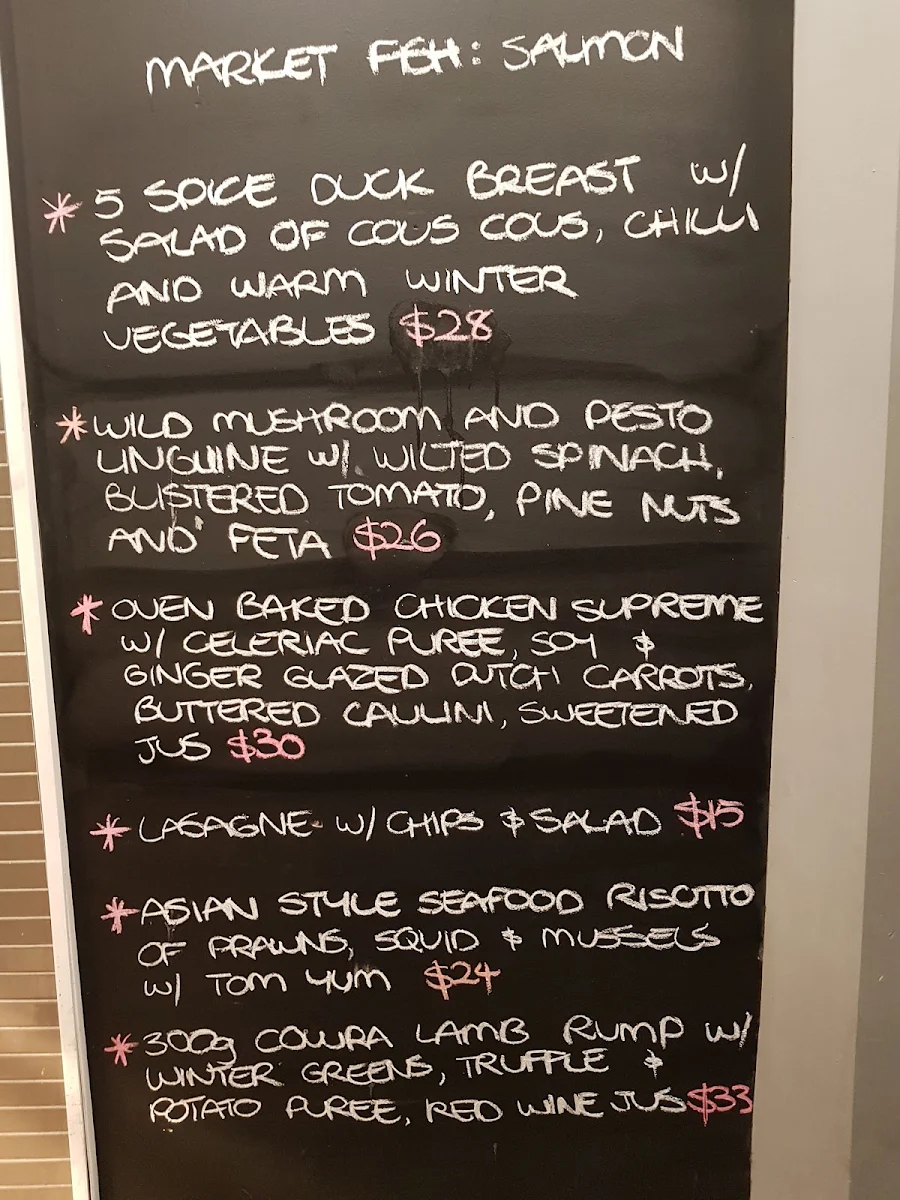 MARKET FISH: SALMON
* 5 SPICE DUCK BREAST W/
SALAD OF COUS COUS, CHILLI
AND WARM WINTER
VEGETABLES $28
* WILD MUSHROOM AND PESTO
LINGUINE W/ WILTED SPINACH,
BLISTERED TOMATO, PINE NUTS
AND FETA $26
* OVEN BAKED CHICKEN SUPREME
W/ CELERIAC PUREE, SOY &
GINGER GLAZED DUTCH CARROTS,
BUTTERED CAULINI, SWEETENED
JUS $30
* LASAGNE W/ CHIPS & SALAD $15
* ASIAN STYLE SEAFOOD RISOTTO
OF PRAWNS, SQUID & MUSSELS
W/ TOM YUM $24
* 300g COWRA LAMB RUMP W/
WINTER GREENS, TRUFFLE &
POTATO PUREE, RED WINE JUS $33